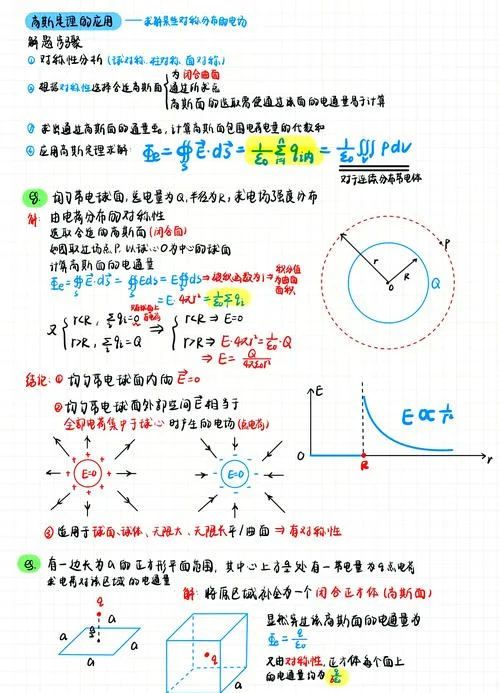 高斯定理的应用 —— 求解某些对称分布的电场
解题步骤
① 对称性分析 (球对称、柱对称、面对称)
② 根据对称性选择合适高斯面 { 为闭合曲面
通过所求点
高斯面的选取需使通过该面的电通量易于计算
③ 求出通过高斯面的通量Φe, 计算高斯面包围电荷电量的代数和
④ 应用高斯定理求解: Φe = ∯s E⃗·dS⃗ = 1/ε0 Σ qi内 = 1/ε0 ∭V ρdV
对于连续分布带电体
例. 均匀带电球面, 总电量为Q, 半径为R, 求电场强度分布
解: 由电荷分布的对称性
选取合适的高斯面 (闭合面)
如图取过场点P, 以球心O为中心的球面
计算高斯面的电通量
Φe = ∯s E⃗·dS⃗ = ∯s EdS = E∯s dS → 被积函数为1 → 积分值为曲面面积
= E·4πr² = 1/ε0 Σ qi
又 { r<R, Σ qi = 0 ⇒ { r<R ⇒ E=0
r>R, Σ qi = Q r>R ⇒ E·4πr² = 1/ε0·Q
⇒ E = Q/4πε0r²
r R O Q P
结论: ① 均匀带电球面内的E⃗=0
② 均匀带电球面外部空间E⃗相当于
全部电荷集中于球心时产生的电场 (点电荷)
E=0 E=0
E O R r
E ∝ 1/r²
③ 适用于球面、球体、无限大、无限长平/曲面 ⇒ 有对称性
例. 有一边长为a的正方形平面范围, 其中心上方处有一带电量为q点电荷
求电荷对该区域的电通量
解: 将原区域补全为一个闭合正方体 (高斯面)
q a a a a
q
显然穿过该高斯面的电通量为
Φe = q/ε0
又由对称性, 正方体每个面上
的电通量均为 q/6ε0